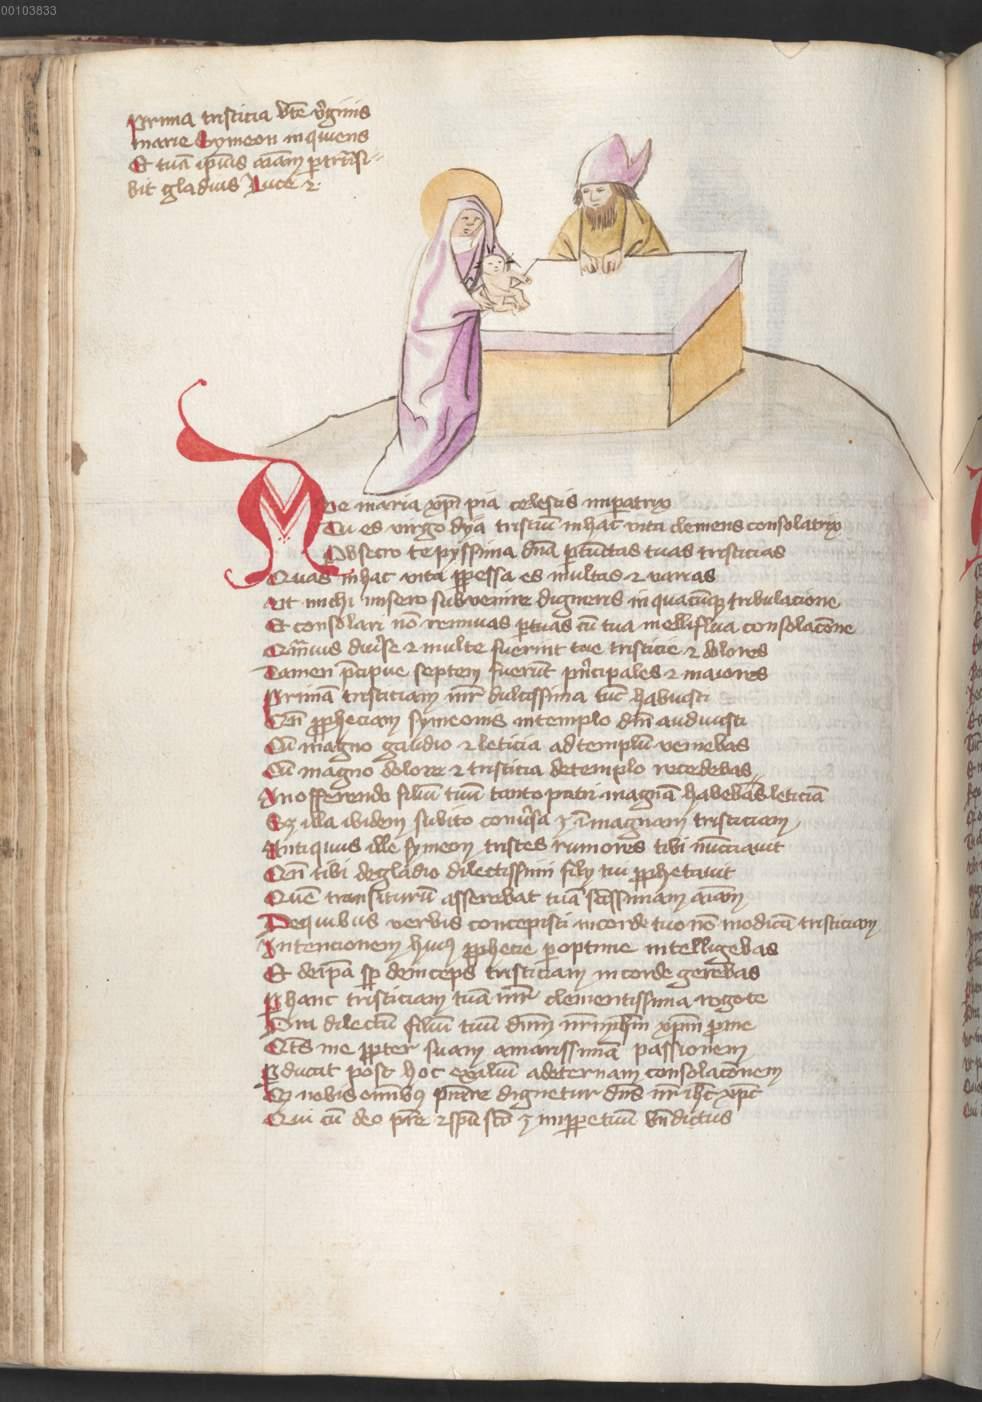 00103833
Prima tristicia bt̄e v̄ginis
marie Symeon inquiens
Et tuā ip̄ius aīam ꝑtrāsi
bit gladius Luce 2
Ave maria xp̄i pia celestis imperatrix
Tu es virgo dya tristiū in hac vita clemens consolatrix
Obsecro te pyssima dn̄a ꝑ cūctas tuas tristicias
Quas in hac vita ꝓpessa es multas ⁊ varias
Ut michi misero subvenire digneris in quacūqꝫ tribulacione
Et consolari nō rennuas ꝑ tuas cū tua melliflua consolacōne
Quāvis diūse ⁊ multe fuerint tue tristicie ⁊ dolores
Tamen p̄cipue septem fuerūt pn̄cipales ⁊ maiores
Primā tristiciam mr̄ dulcissima tūc habuisti
Qn̄ ꝓpheciam symeonis in templo dn̄i audiuisti
Cū magno gaudio ⁊ leticia ad templū veniebas
Cū magno dolore ⁊ tristicia de templo recedebas
In offerendo filiū tuū tanto patri magnā habebas leticiā
Sꝫ illa ibidem subito conv̄sa ꝫ ī magnam tristiciam
Antiquus ille symeon tristes rumores tibi nūctiauit
Qn̄ tibi de gladio dilectissimi filij tui ꝓphetauit
Quē transiturū asserebat tuā sc̄issimam aīam
De quibus verbis concepisti in corde tuo nō modicā tristiciam
Intencionem huiꝰ ꝓphecie peroptime intelligebas
Et deīpa sꝑ deinceps tristiciam in corde gerebas
Per hanc tristiciam tuā mr̄ clementissima rogo te
Ora dilectū filiū tuū dn̄m nr̄m ih̄m xp̄m ꝑ me
Qt̄s me ꝓpter suam amarissimā passionem
Perducat post hoc exiliū ad eternam consolacōnem
Qꝫ nobis om̄ibꝰ p̄stare dignetur dn̄s nr̄ ih̄c xp̄c
Qui cū deo pr̄e ⁊ spū sc̄o ꝫ in ꝑpetuū bn̄dictus